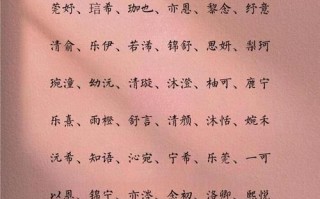 莞妤、琣希、珈也、亦恩、黎念、纾意
清俞、乐伊、若浠、锦舒、思妍、梨珂
琬潼、幼沅、清璇、沐澄、柚可、赓宁
乐熹、雨橙、舒言、清颜、沐恬、婉禾
沅希、知语、沁宛、宁希、乐莞、一可
以恩、锦宁、亦涔、念初、洛卿、熙悦